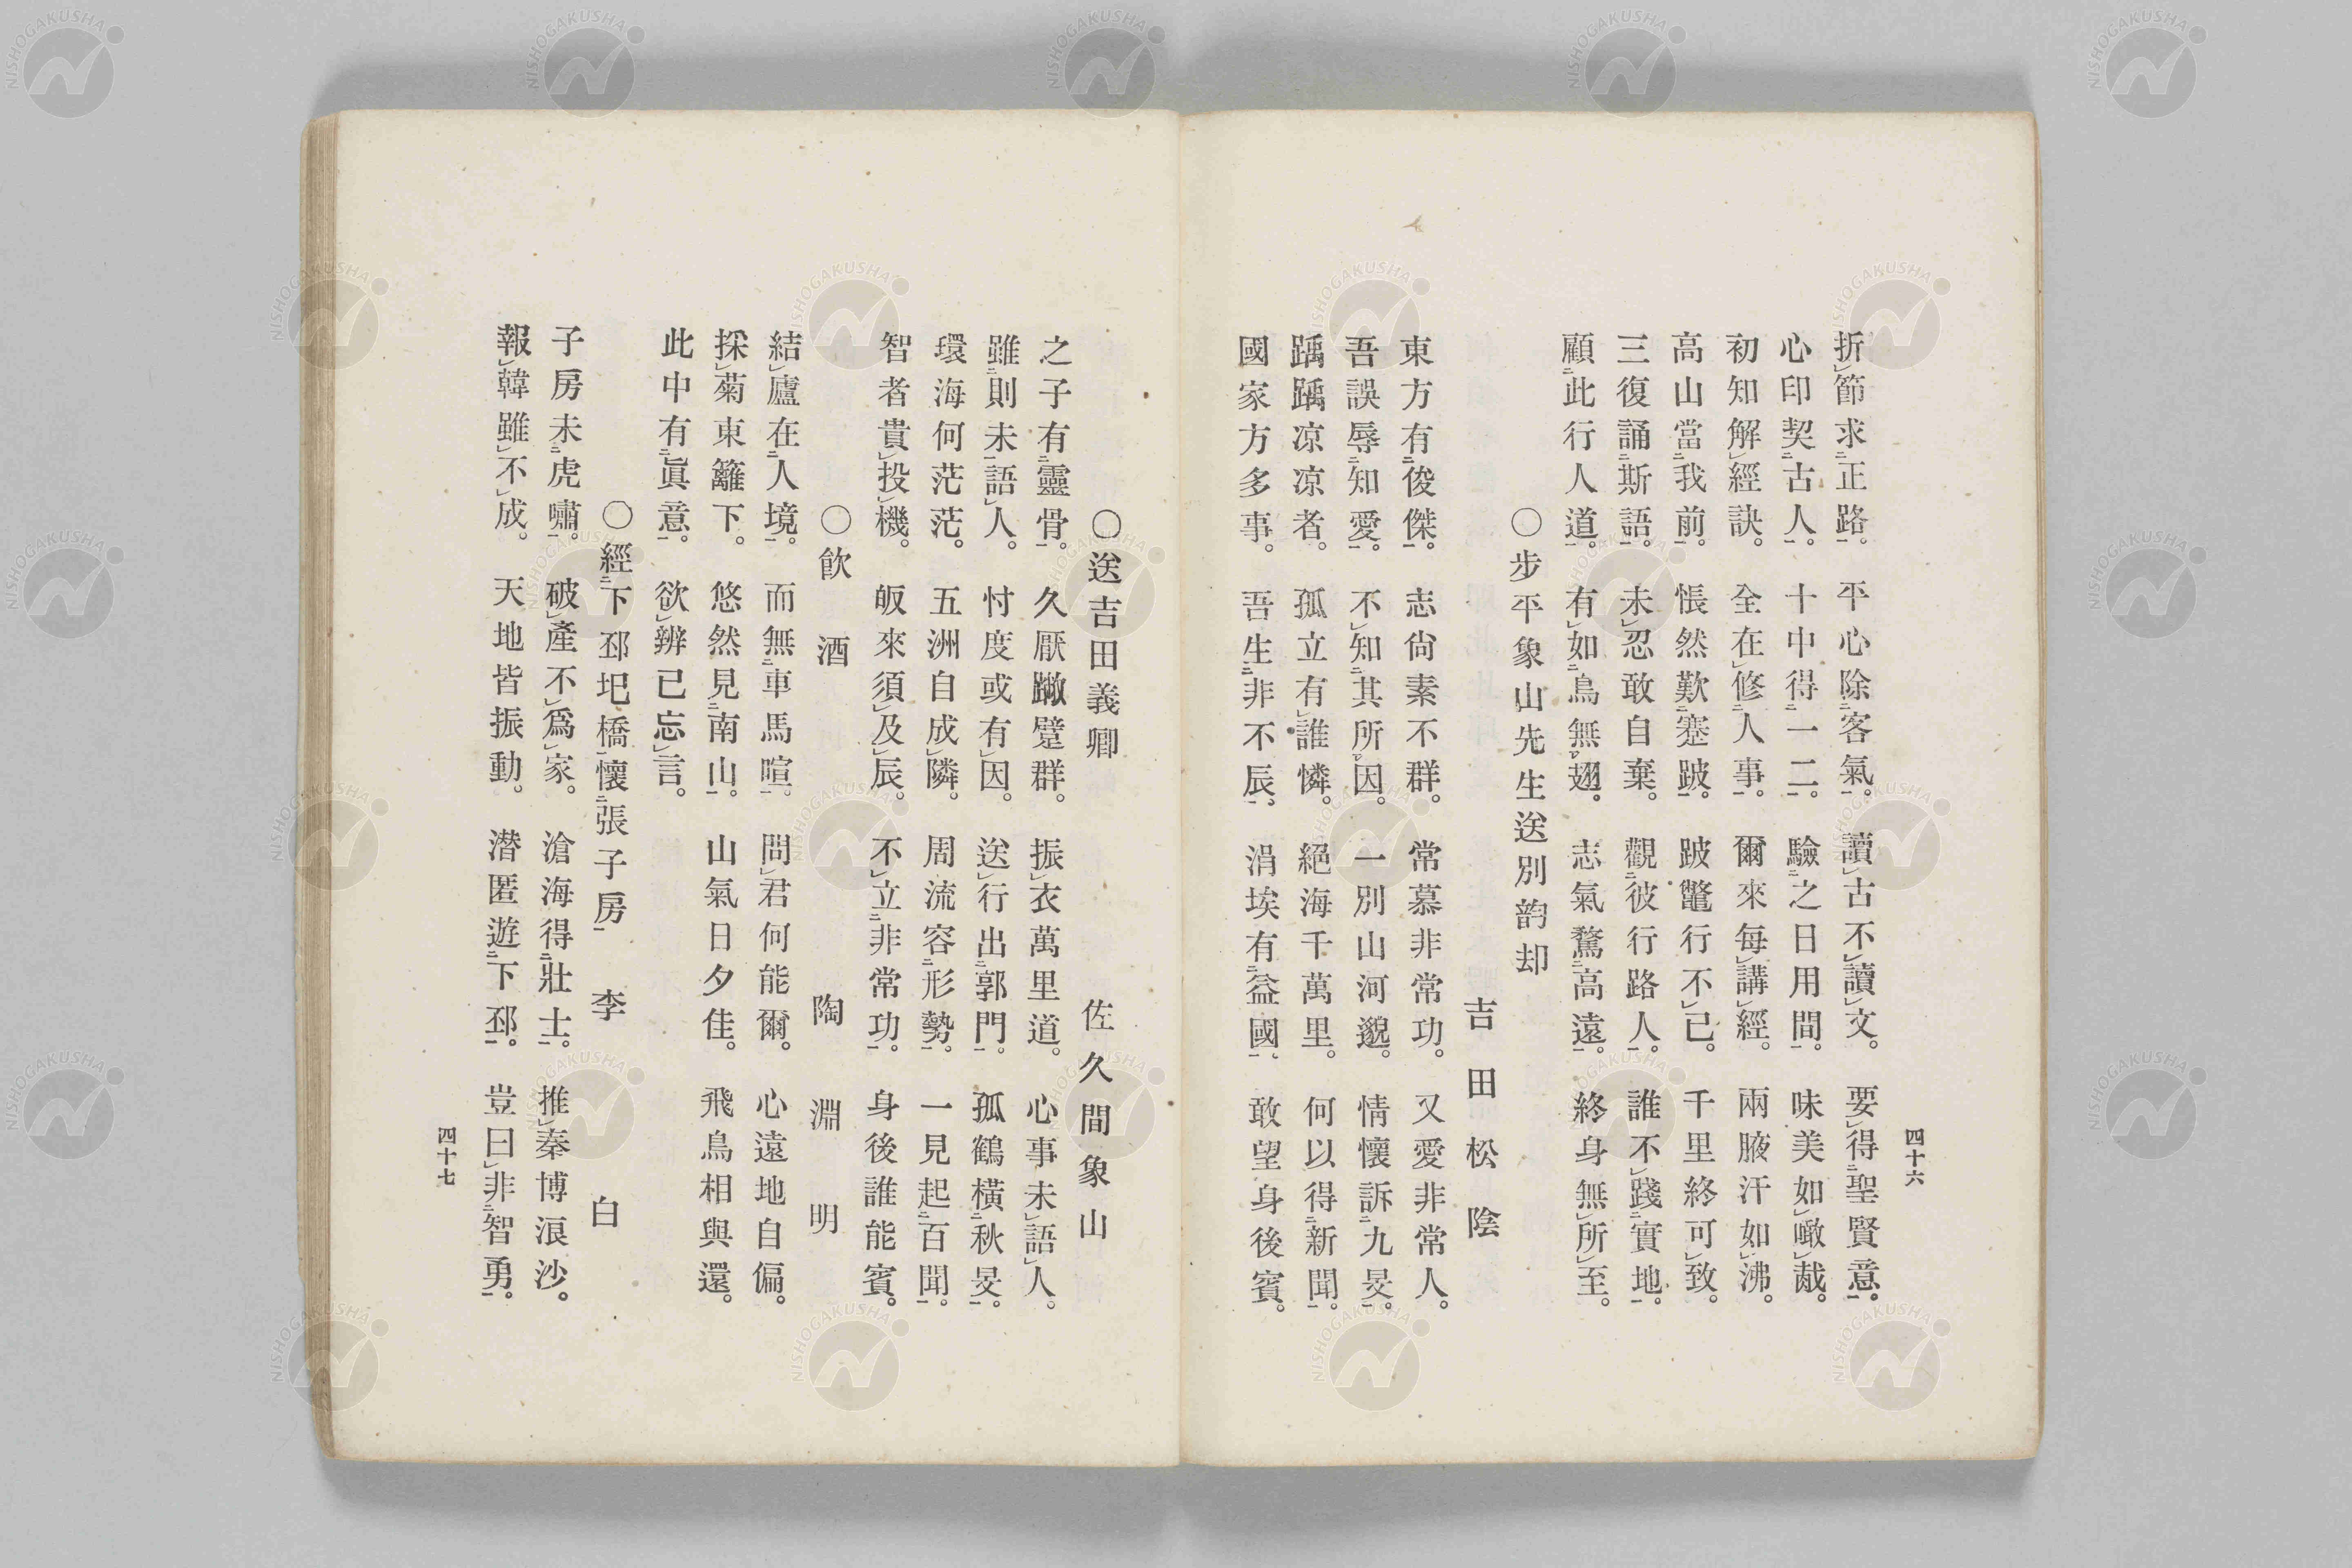 四十六
折節求正路。平心除客氣。讀古不讀文。要得聖賢意。
心印契古人。十中得一二。驗之日用間。味美如噉胾。
初知解經訣。全在修人事。爾來每講經。兩腋汗如沸。
高山當我前。悵然歎蹇跛。跛鼈行不已。千里終可致。
三復誦斯語。未忍敢自棄。觀彼行路人。誰不踐實地。
顧此行人道。有如鳥無翅。志氣騖高遠。終身無所至。
〇步平象山先生送別韵却
吉田松陰
東方有俊傑。志尙素不群。常慕非常功。又愛非常人。
吾誤辱知愛。不知其所因。一別山河邈。情懷訴九旻。
踽踽凉凉者。孤立有誰憐。絕海千萬里。何以得新聞。
國家方多事。吾生非不辰。涓埃有益國、敢望身後賓。
〇送吉田義卿
佐久間象山
之子有靈骨。久厭蹩躄群。振衣萬里道。心事未語人。
雖則未語人。忖度或有因。送行出郭門。孤鶴橫秋旻。
環海何茫茫。五洲自成隣。周流容形勢。一見起百聞。
智者貴投機。皈來須及辰。不立非常功。身後誰能賓。
〇飮酒 陶淵明
結廬在人境。而無車馬喧。問君何能爾。心遠地自偏。
採菊東籬下。悠然見南山。山氣日夕佳。飛鳥相與還。
此中有眞意。欲辨已忘言。
〇經下邳圯橋懷張子房 李白
子房未虎嘯。破產不爲家。滄海得壯士。推秦博浪沙。
報韓雖不成。天地皆振動。潜匿遊下邳。豈曰非智勇。
四十七
NISHOGAKUSHA